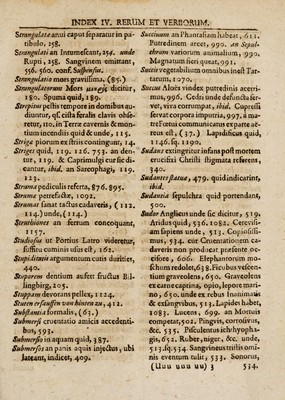 INDEX IV. RERUM ET VERBORUM.
Strangulatæ anui caput separatur in pa-
tibulo, 258.
Strangulati an Intumescant, 254. unde
Rupti, 258. Sanguinem emittant,
556. 560. conf. Suspensus.
Strangulatio mors gravissima, (85.)
Strangulatorum Mors dicitur,
180. Spuma quid, 189.
Strepitus pestis tempore in domibus au-
diuntur, qf. cista feralis clavis obse-
retur, 110. in Terræ cavernis & mon-
tium incendiis quid & unde, 115.
Strigæ piorum ex striis contingunt, 14.
Striges quid, 119. 126. 755. an den-
tur, 119. & Caprimulgi cur sic di-
cantur, ibid. an Sarcophagi, 119.
123.
Strumæ pediculis referta, 876. 895.
Strumæ petrefactæ, 1092.
Strumas sanat tactus cadaveris, (112.
114.) unde, (114.)
Struthiones an ferrum concoquant,
1157.
Studiosus ut Portius Latro videretur,
suffitu cumini usus est, 162.
Stupiditatis argumentum cutis durities,
440.
Stuporem dentium aufert fructus Bil-
lingbarg, 205.
Stuppam devorans pellex, 1124.
412.
Substantia formalis, (63.)
Submersi cruentatio amicis acceden-
tibus, 593.
Submersio in aquam quid, 387.
Submersos an panis aquis injectus, ubi
lateant, indices, 409.
Succinum an Phantasiam habeat, 611.
Putredinem arcet, 990. an Sepul-
chrum variorum animalium, 990.
Magnatum fieri queat, 991.
Succis vegetabilium omnibus inest Tar-
tarum, 1070.
Succus Aloës vindex putredinis acerri-
mus, 996. Cedri unde defuncta ser-
vet, viva corrumpat, ibid. Cupressi
servat corpora imputria, 997. à ma-
tre Fotui communicatus expare al-
teus est, (37.) Lapidificus quid,
1146. sq. 1190.
Sudare extinguitur infans post mortem
crucifixi Christi stigmata referens,
340.
Sudantes statuæ, 479. quid indicarint,
ibid.
Sudantia sepulchra quid portendant,
500.
Sudor Anglicus unde sic dicitur, 519.
Aridus quid, 536. 1082. Cerevisi-
am sapiens unde, 513. Copiosissi-
mus, 534. cur Cruentationem ca-
daveris non producat præsente oc-
cisore, 606. Elephantorum mo-
schum redolet, 638. Ficubus vescen-
tium graveolens, 650. Graveolens
ex carne caprina, opio, lepore mari-
no, 650. unde ex rebus horminatis
& exsanguibus, 513. Lapidei habet,
1083. Lucens, 699. an Mortuis
competat, 502. Pinguis, corrosivus,
&c. 535. Pisculentus ichthyopha-
gis, 652. Ruber, niger, &c. unde,
513. sq. 534. Sanguineus tristis omi-
nis eventum tulit, 533. Sonorus,
(Uuu uuu uu) 3
534.